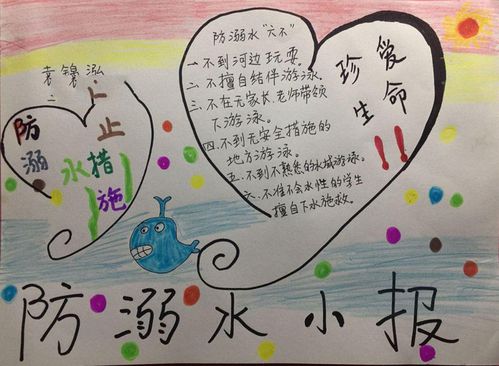 防溺水“六不”
一 不到河边玩耍。
二. 不擅自结伴游泳。
三. 不在无家长、老师带领
下游泳。
四. 不到无安全措施的
地方游泳。
五. 不到不熟悉的水域游泳。
六. 不准不会水性的学生
擅自下水施救。
珍爱
生命
!!
袁锦泓
防溺
水措施
防溺水小报